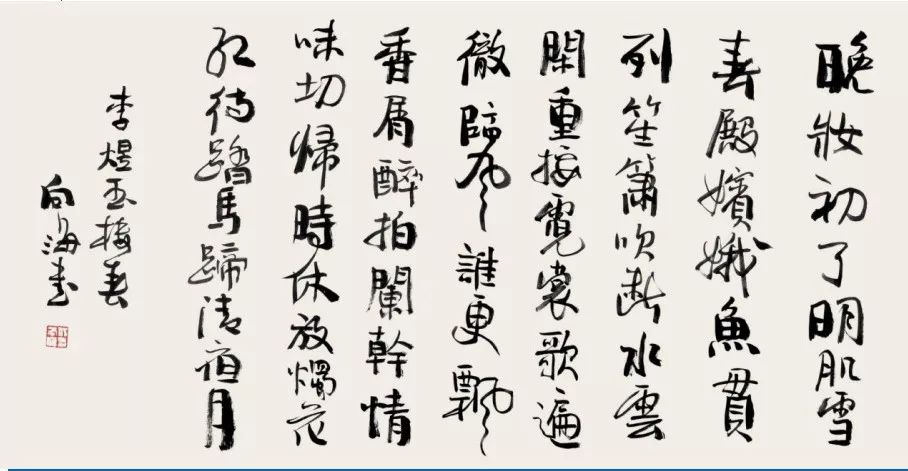 晚妝初了明肌雪
春殿嬪娥魚貫
列笙簫吹斷水雲
閑重按霓裳歌遍
徹臨風誰更飄
香屑醉拍闌幹情
味切歸時休放燭花
紅待踏馬蹄清夜月
李煜玉樓春
向海書